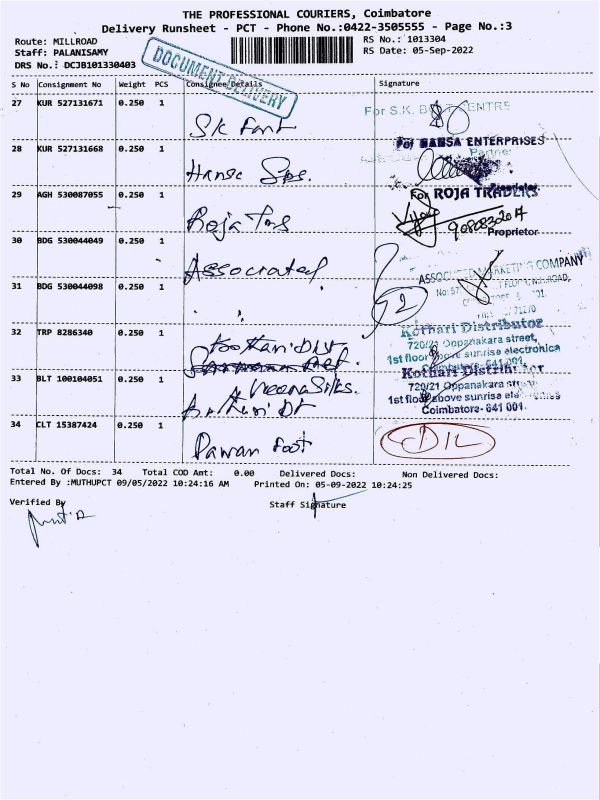 THE PROFESSIONAL COURIERS, Coimbatore
Delivery Runsheet - PCT - Phone No.:0422-3505555 - Page No.:3
Route: MILLROAD
Staff: PALANISAMY
DRS No.: DCJB101330403
RS No.: 1013304
RS Date: 05-Sep-2022
DOCUMENT DELIVERY
S No Consignment No Weight PCS Consignee Details Signature
27 KUR 527131671 0.250 1
For S.K.
SK
28 KUR 527131668 0.250 1
For HANSA ENTERPRISES
Partner
Hansa
29 AGH 530087055 0.250 1
For ROJA TRADERS
Proprietor
Roja
30 BDG 530044049 0.250 1
Associated
ASSOCIATED MARKETING COMPANY
31 BDG 530044098 0.250 1
32 TRP 8286340 0.250 1
Kothari Dist
Kothari Distributor
720/21 Oppanakara street,
1st floor above sunrise electronica
Coimbatore- 641 001.
33 BLT 100104051 0.250 1
Veena Silks.
Kothari Distributor
720/21 Oppanakara street,
1st floor above sunrise
Coimbatore- 641 001.
34 CLT 15387424 0.250 1
Pawan Foot
Total No. Of Docs: 34 Total COD Amt: 0.00 Delivered Docs: Non Delivered Docs:
Entered By :MUTHUPCT 09/05/2022 10:24:16 AM Printed On: 05-09-2022 10:24:25
Verified By
Staff Signature